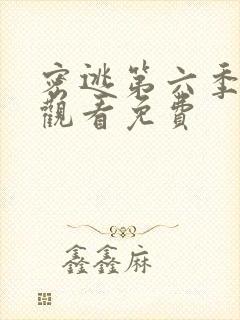 密逃第六季
觀看免費
鑫鑫麻